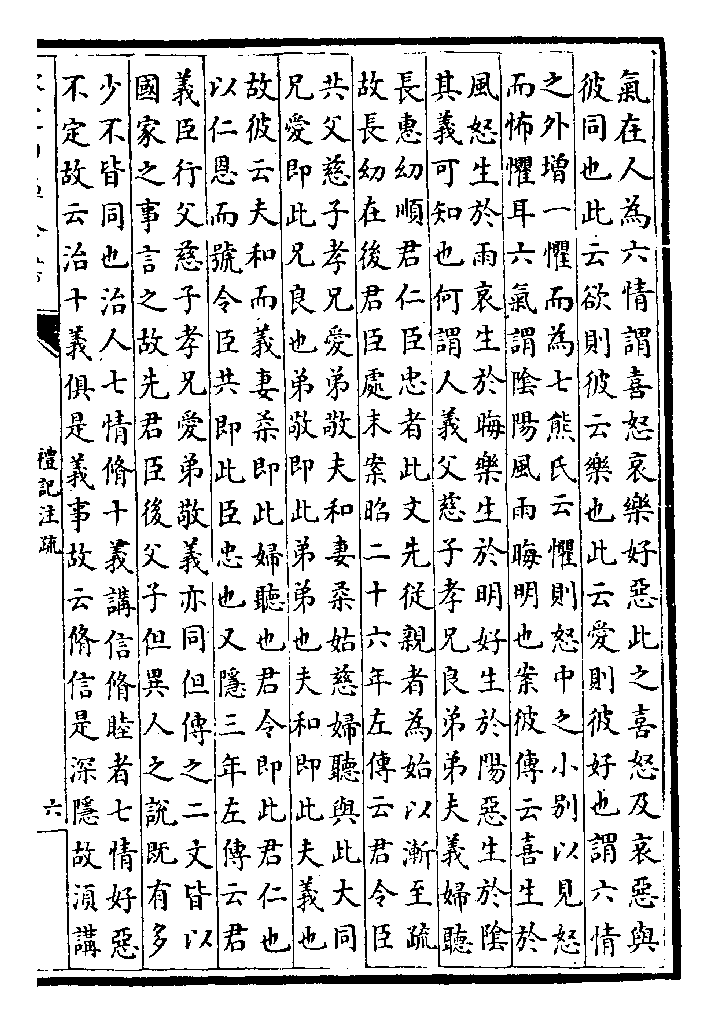 氣在人為六情謂喜怒哀樂好惡此之喜怒及哀惡與
彼同也此云欲則彼云樂也此云愛則彼好也謂六情
之外增一懼而為七熊氏云懼則怒中之小別以見怒
而怖懼耳六氣謂陰陽風雨晦明也案彼傳云喜生於
風怒生於雨哀生於晦樂生於明好生於陽惡生於陰
其義可知也何謂人義父慈子孝兄良弟弟夫義婦聽
長惠幼順君仁臣忠者此文先從親者為始以漸至疏
故長幼在後君臣處末案昭二十六年左傳云君令臣
共父慈子孝兄愛弟敬夫和妻柔姑慈婦聽與此大同
兄愛即此兄良也弟敬即此弟弟也夫和即此夫義也
故彼云夫和而義妻柔即此婦聽也君令即此君仁也
以仁恩而號令臣共即此臣忠也又隱三年左傳云君
義臣行父慈子孝兄愛弟敬義亦同但傳之二文皆以
國家之事言之故先君臣後父子但異人之說既有多
少不皆同也治人七情脩十義講信脩睦者七情好惡
不定故云治十義俱是義事故云脩信是深隱故須講
禮記注疏
六